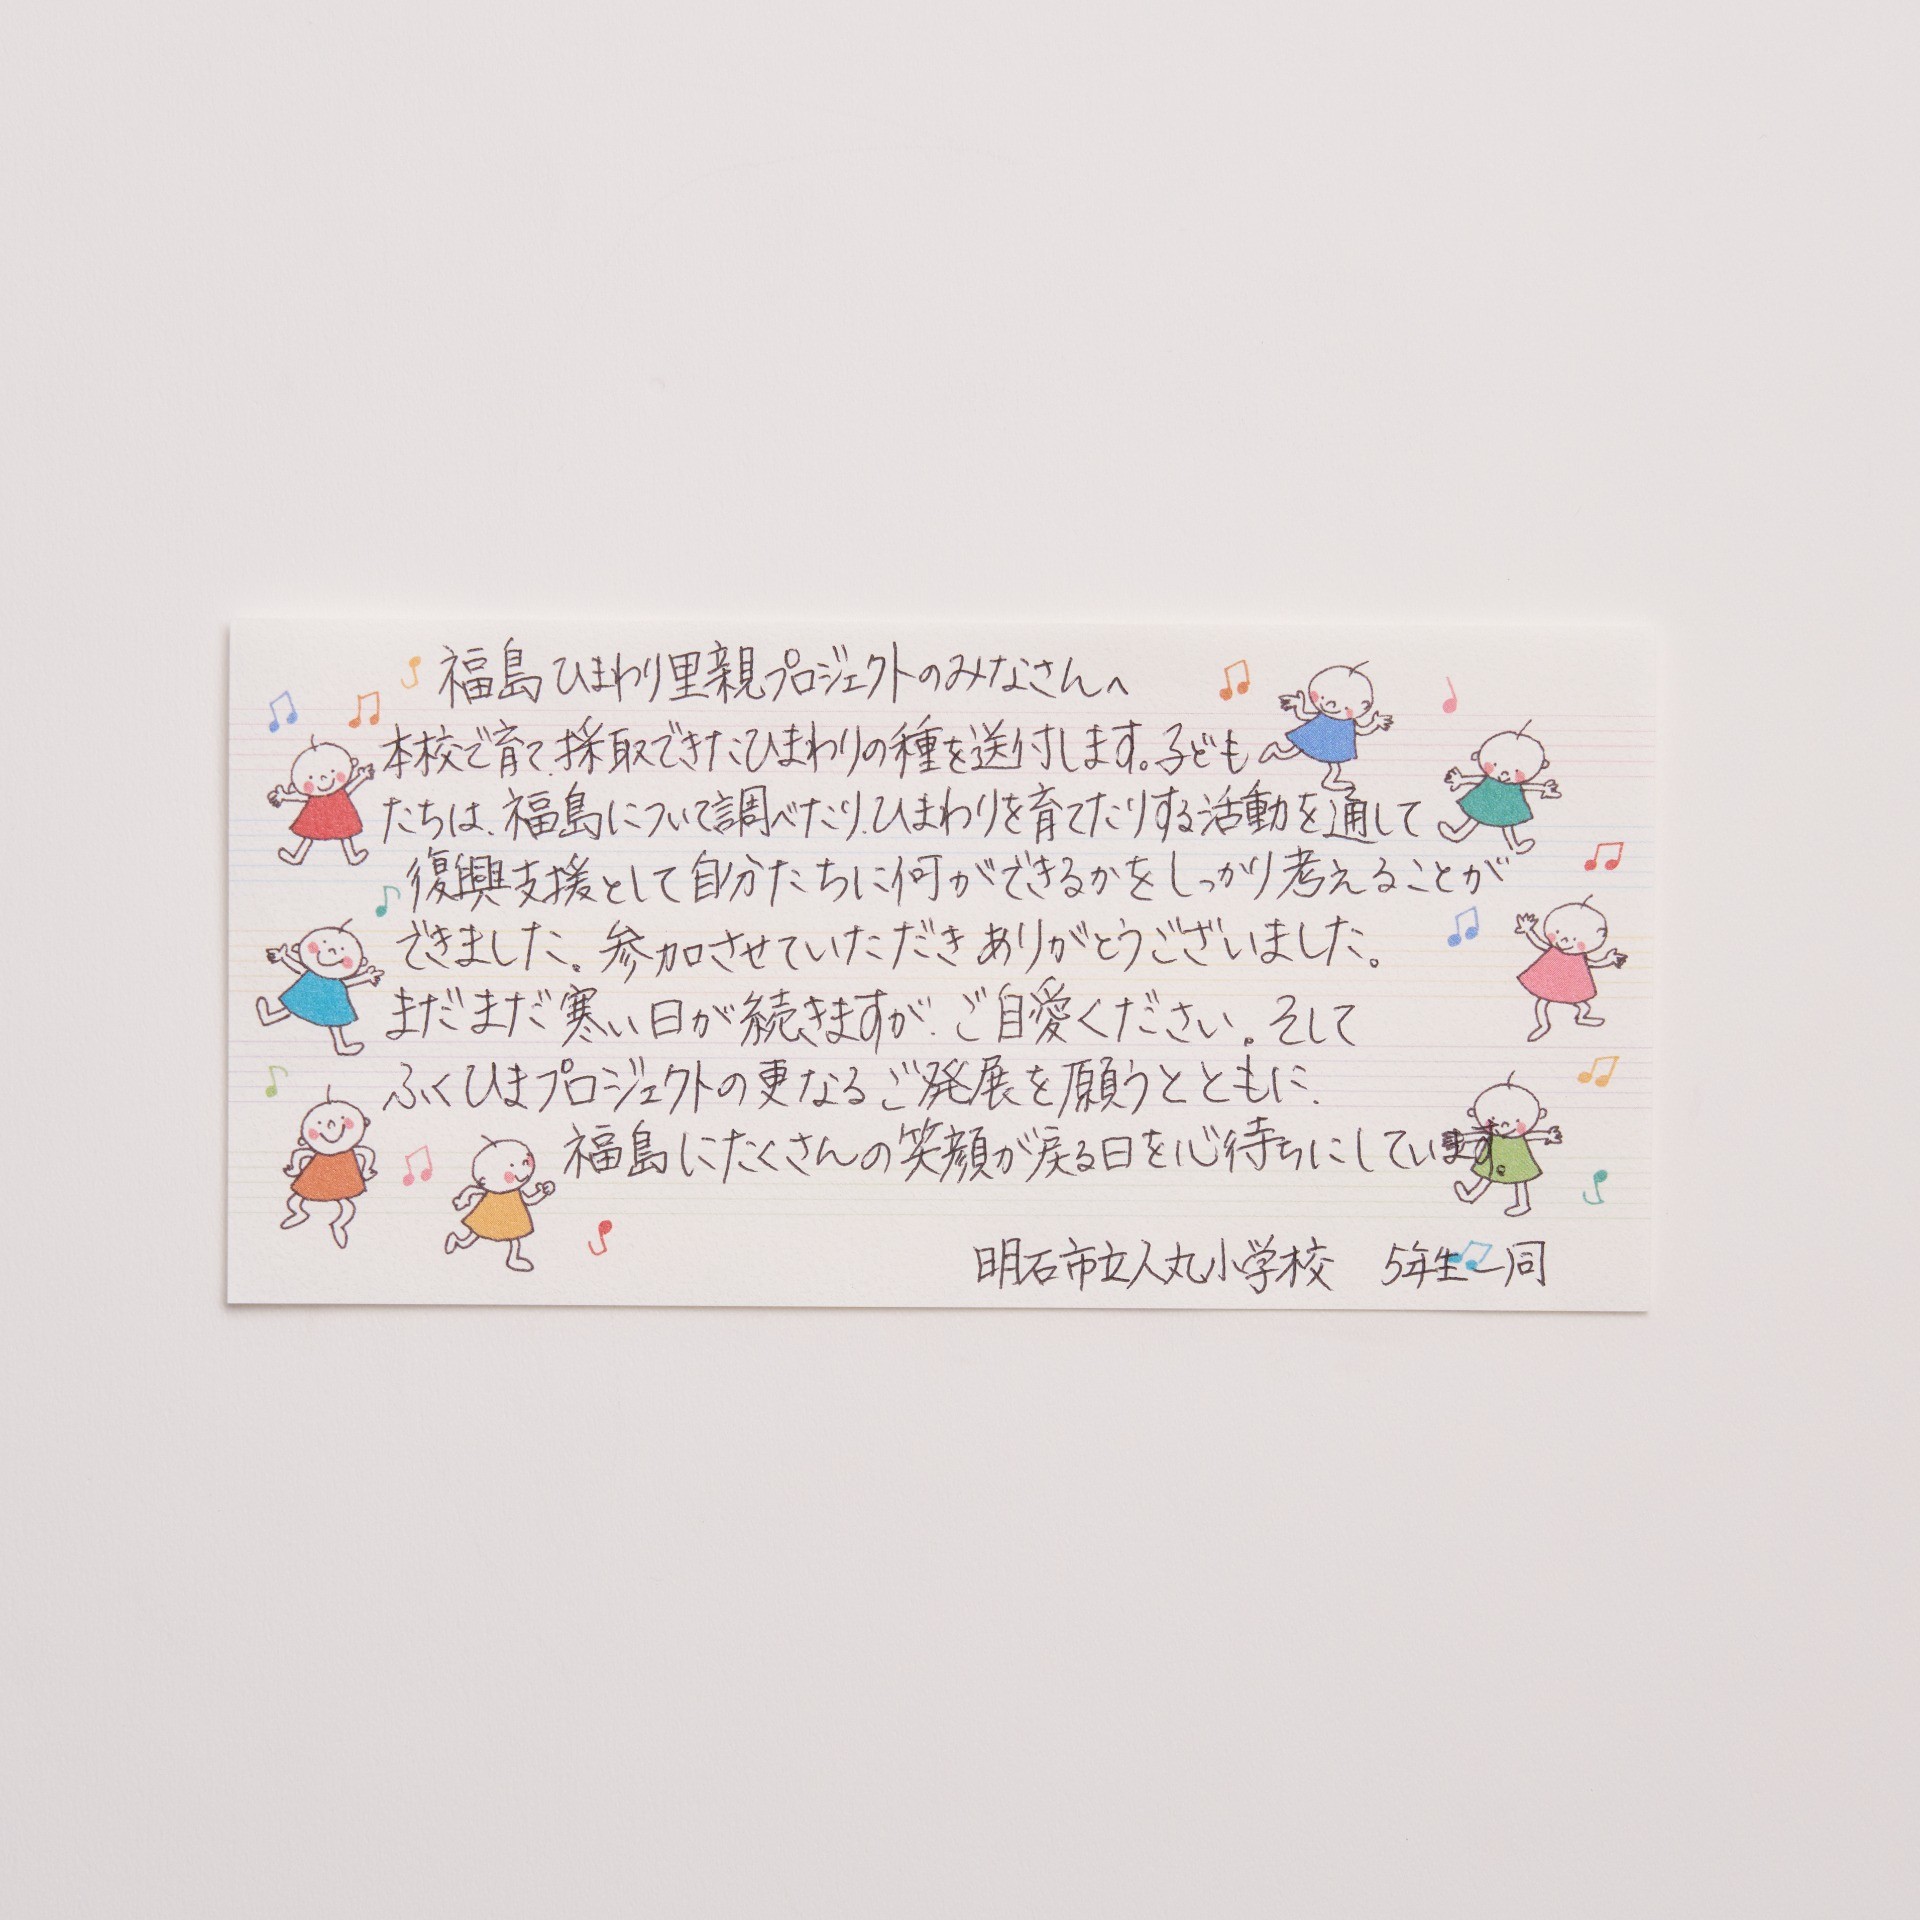 福島ひまわり里親プロジェクトのみなさんへ
本校で育て、採取できたひまわりの種を送付します。子ども
たちは、福島について調べたり、ひまわりを育てたりする活動を通して
復興支援として自分たちに何ができるかをしっかり考えることが
できました。参加させていただきありがとうございました。
まだまだ寒い日が続きますが、ご自愛ください。そして
ふくひまプロジェクトの更なるご発展を願うとともに、
福島にたくさんの笑顔が戻る日を心待ちにしています。
明石市立人丸小学校　5年生一同